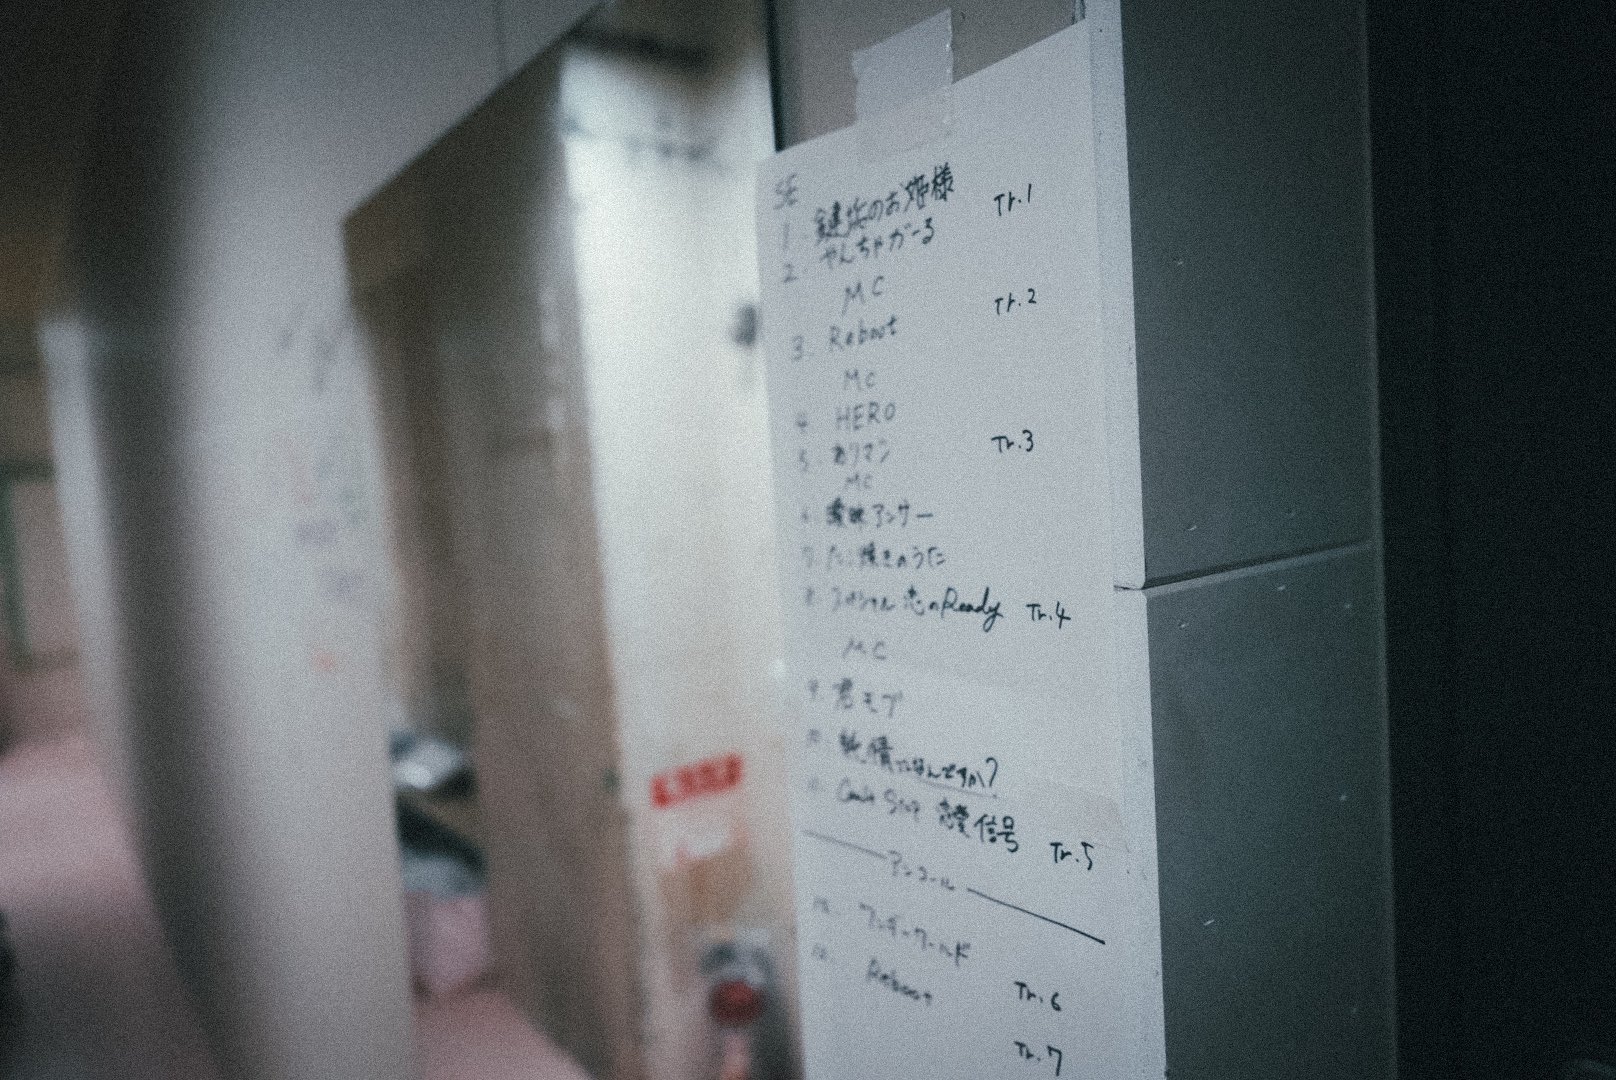 SE
1. 鍵盤のお姫様 Tr.1
2. やんちゃがーる
MC Tr.2
3. Reboot
MC
4. HERO
5. ありマン Tr.3
MC
6. 曖昧アンサー
7. たこ焼きのうた
8. スペシャル恋のReady Tr.4
MC
9. 君モブ
10. 純情なんですが?
11. Can't Stop 恋愛信号 Tr.5
アンコール
12. ワンダーワールド
13. Reboot Tr.6
Tr.7